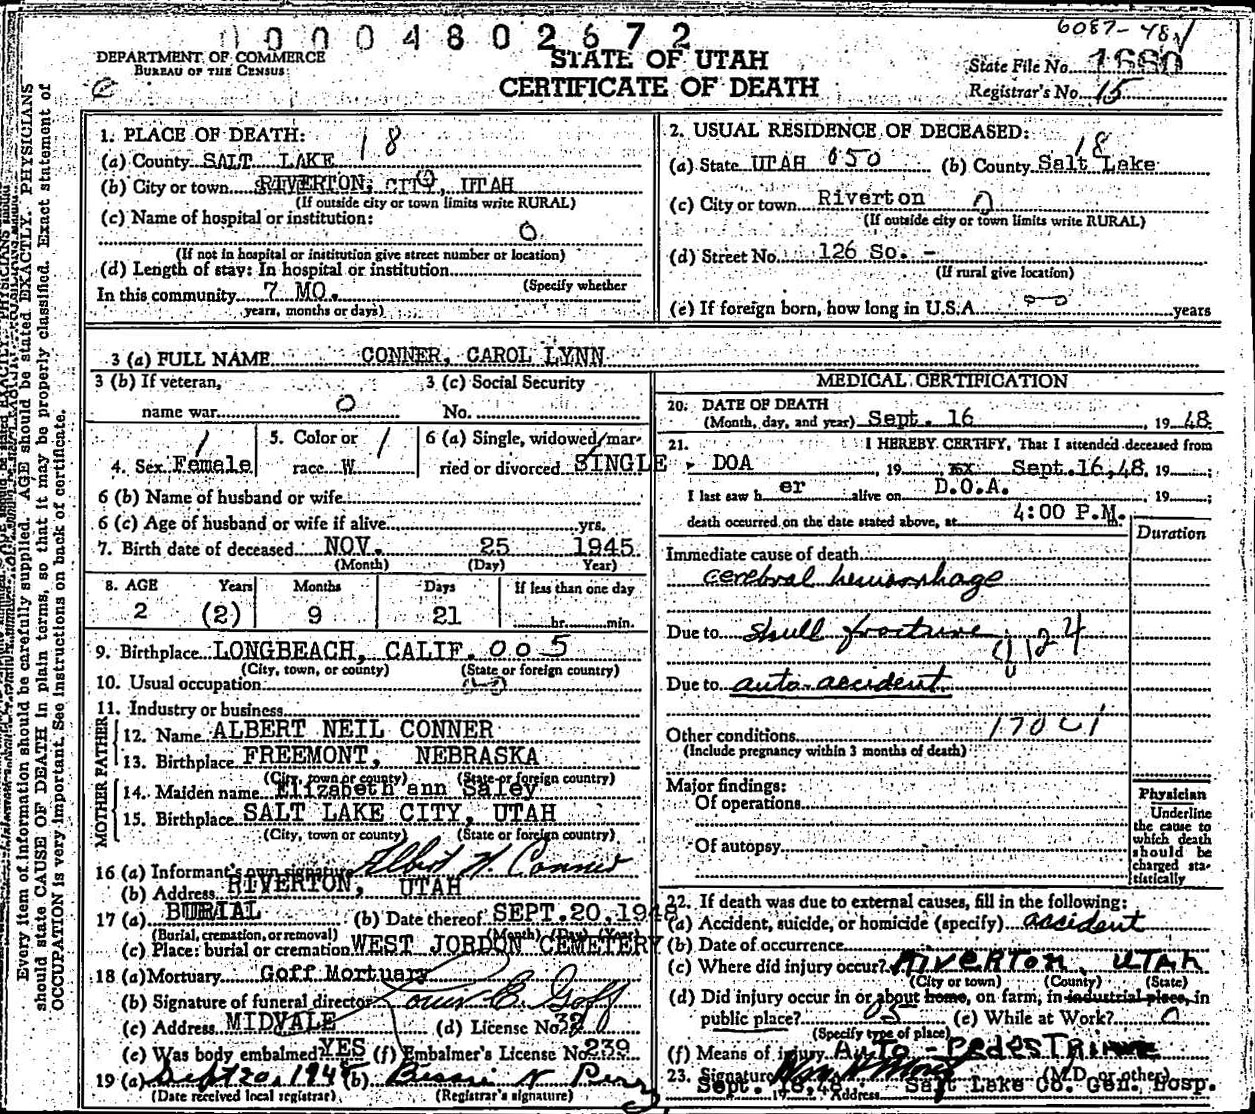 0004802672
6087-48
DEPARTMENT OF COMMERCE
BUREAU OF THE CENSUS
STATE OF UTAH
CERTIFICATE OF DEATH
State File No. 1680
Registrar's No. 15
1. PLACE OF DEATH: 18
(a) County SALT LAKE
(b) City or town RIVERTON, CITY, UTAH
(If outside city or town limits write RURAL)
(c) Name of hospital or institution:
0
(If not in hospital or institution give street number or location)
(d) Length of stay: In hospital or institution
(Specify whether
In this community 7 MO.
years, months or days)
2. USUAL RESIDENCE OF DECEASED:
18
(a) State UTAH 050 (b) County Salt Lake
(c) City or town Riverton 0
(If outside city or town limits write RURAL)
(d) Street No. 126 So. -
(If rural give location)
(e) If foreign born, how long in U.S.A. years
3 (a) FULL NAME CONNER, CAROL LYNN
3 (b) If veteran,
name war 0
3 (c) Social Security
No.
4. Sex Female 1
5. Color or
race W 1
6 (a) Single, widowed, mar-
ried or divorced SINGLE
6 (b) Name of husband or wife
6 (c) Age of husband or wife if alive yrs.
7. Birth date of deceased NOV. 25 1945
(Month) (Day) Year)
8. AGE Years Months Days If less than one day
2 (2) 9 21 hr. min.
9. Birthplace LONGBEACH, CALIF. 005
(City, town, or county) (State or foreign country)
10. Usual occupation
11. Industry or business
FATHER
12. Name ALBERT NEIL CONNER
13. Birthplace FREEMONT, NEBRASKA
(City, town or county) (State or foreign country)
MOTHER
14. Maiden name Elizabeth ann Saley
15. Birthplace SALT LAKE CITY, UTAH
(City, town or county) (State or foreign country)
16 (a) Informant's own signature Albert N. Conner
(b) Address RIVERTON, UTAH
17 (a) BURIAL (b) Date thereof SEPT.20.1948
(Burial, cremation, or removal) (Month) (Day) (Year)
(c) Place: burial or cremation WEST JORDON CEMETERY
18 (a) Mortuary Goff Mortuary
(b) Signature of funeral director Louis E. Goff
(c) Address MIDVALE (d) License No. 32
(e) Was body embalmed? YES (f) Embalmer's License No. 239
19 (a) Sept 20, 1948 (b) Bessie N
(Date received local registrar) (Registrar's signature)
MEDICAL CERTIFICATION
20. DATE OF DEATH
(Month, day, and year) Sept. 16, 19 48
21. I HEREBY CERTIFY, That I attended deceased from
DOA, 19 Sept.16,48, 19 ;
I last saw h er alive on D.O.A. 19 ;
death occurred on the date stated above, at 4:00 P.M.
Duration
Immediate cause of death
cerebral hemorrhage
Due to skull fracture
Due to auto-accident
Other conditions
(Include pregnancy within 3 months of death)
Major findings:
Of operations
Of autopsy
Physician
Underline
the cause to
which death
should be
charged sta-
tistically
22. If death was due to external causes, fill in the following:
(a) Accident, suicide, or homicide (specify) accident
(b) Date of occurrence
(c) Where did injury occur? RIVERTON, UTAH
(City or town) (County) (State)
(d) Did injury occur in or about home, on farm, in industrial place, in
public place? 05 (e) While at Work? 0
(Specify type of place)
(f) Means of injury Auto-Pedestrian
23. Signature (M.D. or other)
Sept. 18,48. Salt Lake Co. Gen. Hosp.
19 Address
Every item of information should be carefully supplied. AGE should be stated EXACTLY. PHYSICIANS
should state CAUSE OF DEATH in plain terms, so that it may be properly classified. Exact statement of
OCCUPATION is very important. See instructions on back of certificate.